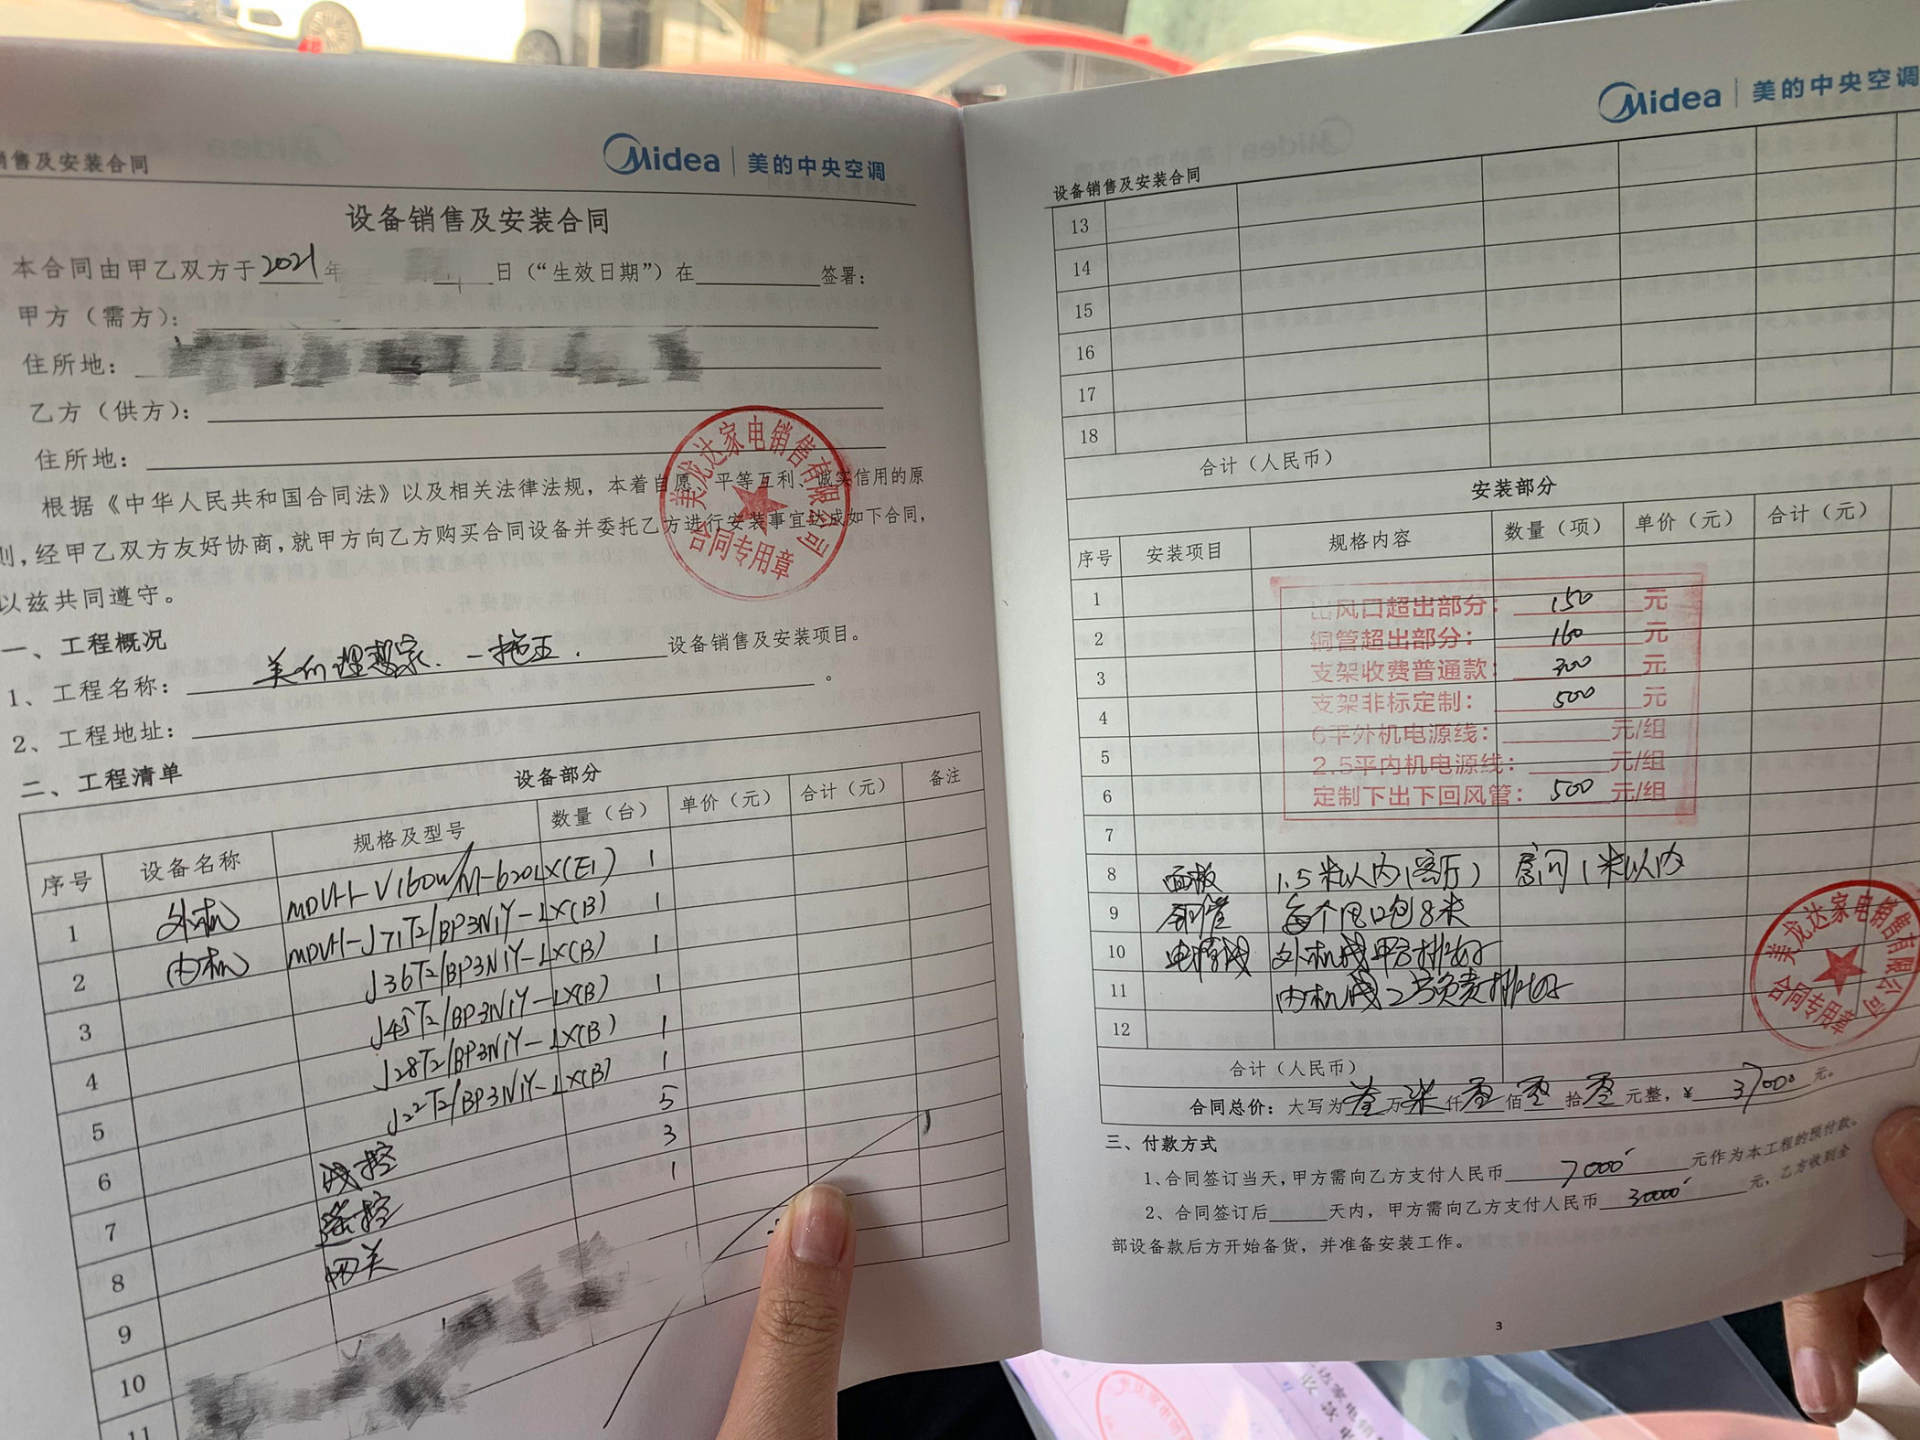 销售及安装合同
Midea | 美的中央空调
设备销售及安装合同
本合同由甲乙双方于2021年 日(“生效日期”)在 签署:
甲方(需方):
住所地:
乙方(供方):
住所地:
根据《中华人民共和国合同法》以及相关法律法规,本着自愿、平等互利、诚实信用的原
则,经甲乙双方友好协商,就甲方向乙方购买合同设备并委托乙方进行安装事宜达成如下合同,
以兹共同遵守。
美龙达家电销售有限公司
合同专用章
一、工程概况
1、工程名称: 美的理想家.一拖五. 设备销售及安装项目。
2、工程地址: 。
二、工程清单
设备部分
序号 设备名称 规格及型号 数量(台) 单价(元) 合计(元) 备注
1 外机 MDVH-V160W/N1-620LX(E1) 1
2 内机 MDVH-J71T2/BP3N1Y-LX(B) 1
3 J36T2/BP3N1Y-LX(B) 1
4 J45T2/BP3N1Y-LX(B) 1
5 J28T2/BP3N1Y-LX(B) 1
6 J22T2/BP3N1Y-LX(B) 1
7 线控 5
8 遥控 3
9 网关 1
10
11
Midea | 美的中央空调
设备销售及安装合同
13
14
15
16
17
18
合计(人民币)
安装部分
序号 安装项目 规格内容 数量(项) 单价(元) 合计(元)
1
2
3
4
5
6
7
出风口超出部分: 150 元
铜管超出部分: 160 元
支架收费普通款: 300 元
支架非标定制: 500 元
6平外机电源线: 元/组
2.5平内机电源线: 元/组
定制下出下回风管: 500 元/组
8 面板 1.5米以内(客厅) 房间1米以内
9 铜管 每个风口包8米
10 电源线 外机线甲方排好
11 内机线乙方负责排好
12
美龙达家电销售有限公司
合同专用章
合计(人民币)
合同总价:大写为叁万柒仟零佰零拾零元整,¥ 37000 元。
三、付款方式
1、合同签订当天,甲方需向乙方支付人民币 7000 元作为本工程的预付款。
2、合同签订后 天内,甲方需向乙方支付人民币 30000 元,乙方收到全
部设备款后方开始备货,并准备安装工作。
3